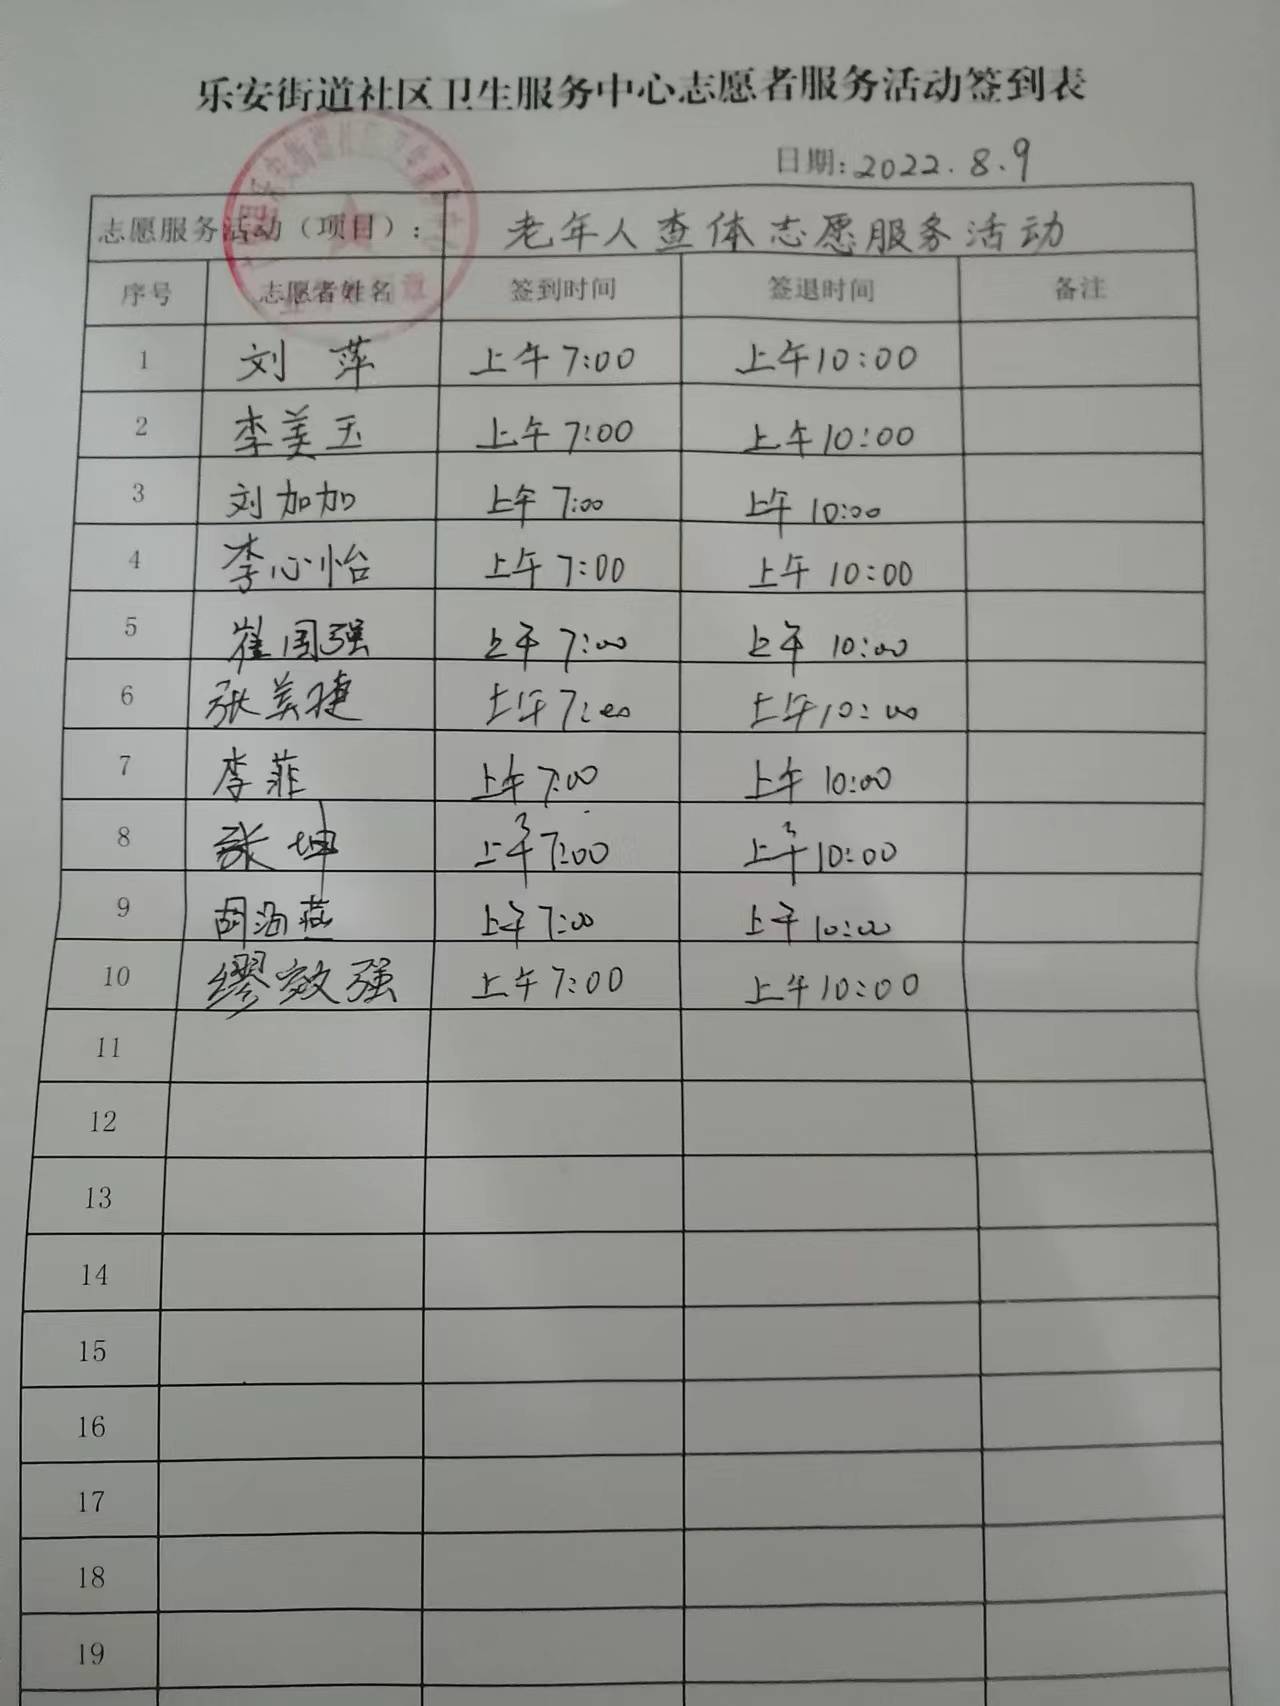 乐安街道社区卫生服务中心志愿者服务活动签到表
日期：2022.8.9
志愿服务活动（项目）： 老年人查体志愿服务活动
序号 志愿者姓名 签到时间 签退时间 备注
1 刘萍 上午7:00 上午10:00
2 李美玉 上午7:00 上午10:00
3 刘加加 上午7:00 上午10:00
4 李心怡 上午7:00 上午10:00
5 崔国强 上午7:00 上午10:00
6 张美捷 上午7:00 上午10:00
7 李菲 上午7:00 上午10:00
8 张坤 上午7:00 上午10:00
9 胡海燕 上午7:00 上午10:00
10 缪效强 上午7:00 上午10:00
11
12
13
14
15
16
17
18
19